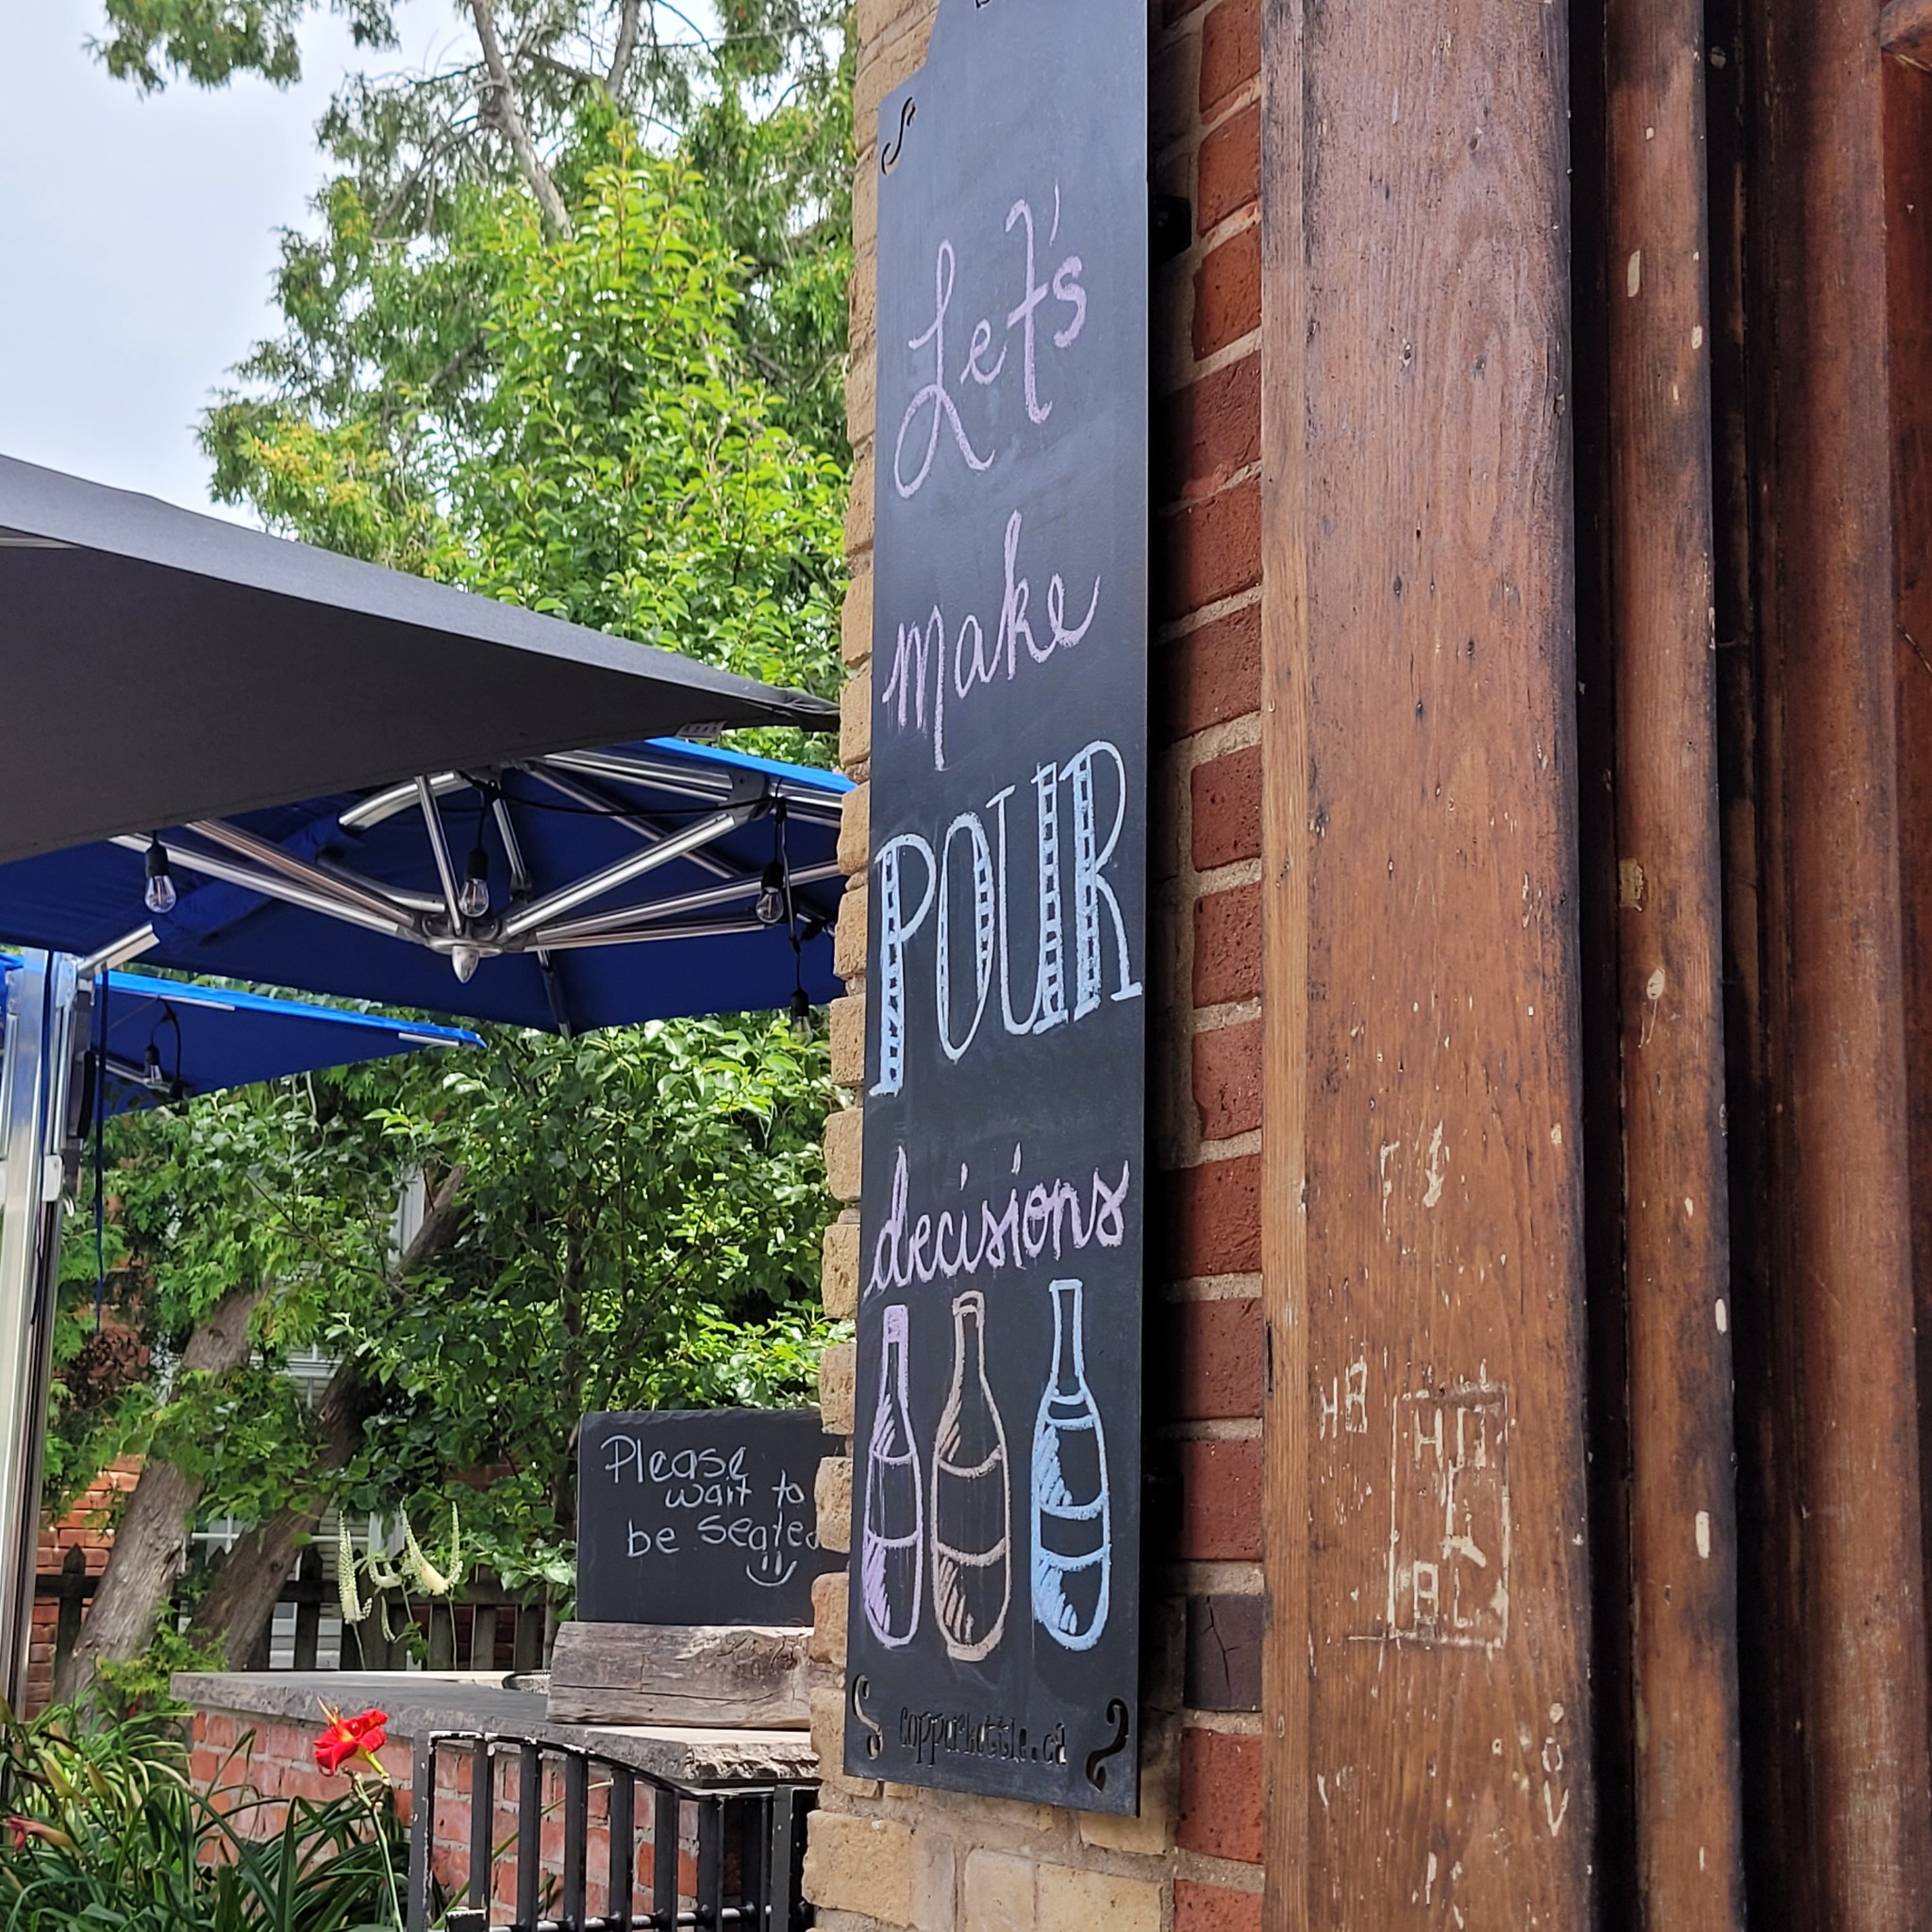 Let's
make
POUR
decisions
copperkettle.ca
Please
wait to
be seated
HB